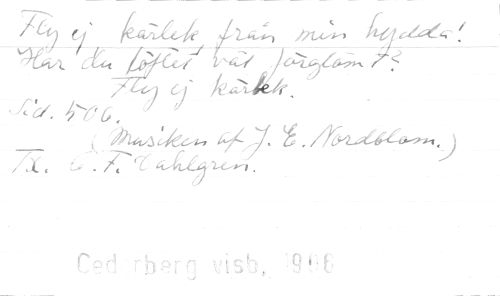 Fly ej kärlek från min hydda!
Har du löftet vår förglömt?
Fly ej kärlek.
Sid. 506.
(Musiken af J. E. Nordblom.)
Tx. C. F. Dahlgren.
Cederberg visb, 1908